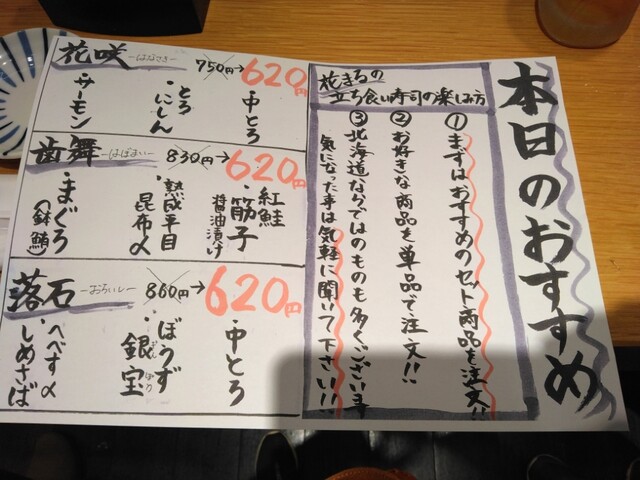 本日のおすすめ
花まるの
立ち食い寿司の楽しみ方
① まずはおすすめのセット商品を注文!!
② お好きな商品を単品で注文!!
③ 北海道ならではのものも多くございます
気になった事は気軽に聞いて下さい!!
花咲 ーはなさきー 750円→620円
・中とろ
・とろにしん
・サーモン
歯舞 ーはぼまいー 830円→620円
・紅鮭筋子醤油漬け
・熟成平目昆布〆
・まぐろ(鉢鮪)
落石 ーおちいしー 860円→620円
・中とろ
・ぼうず銀宝
・へべす〆しめさば